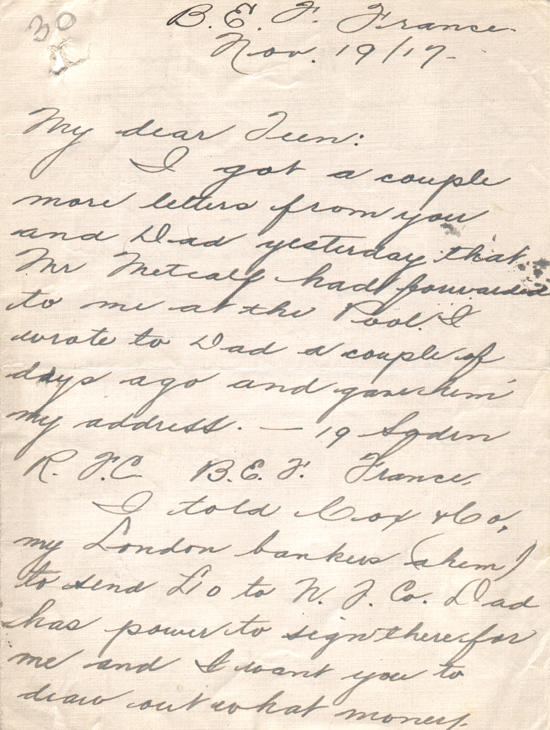 30
B. E. F. France.
Nov. 19/17-
My dear Teen:
I got a couple
more letters from you
and Dad yesterday that
Mr Metcalf had forwarded
to me at the Pool. I
wrote to Dad a couple of
days ago and gave him
my address. — 19 Sqdrn
R. F. C. B. E. F. France.
I told Cox & Co,
my London bankers (ahem)
to send £10 to N. T. Co. Dad
has power to sign there for
me and I want you to
draw out what money